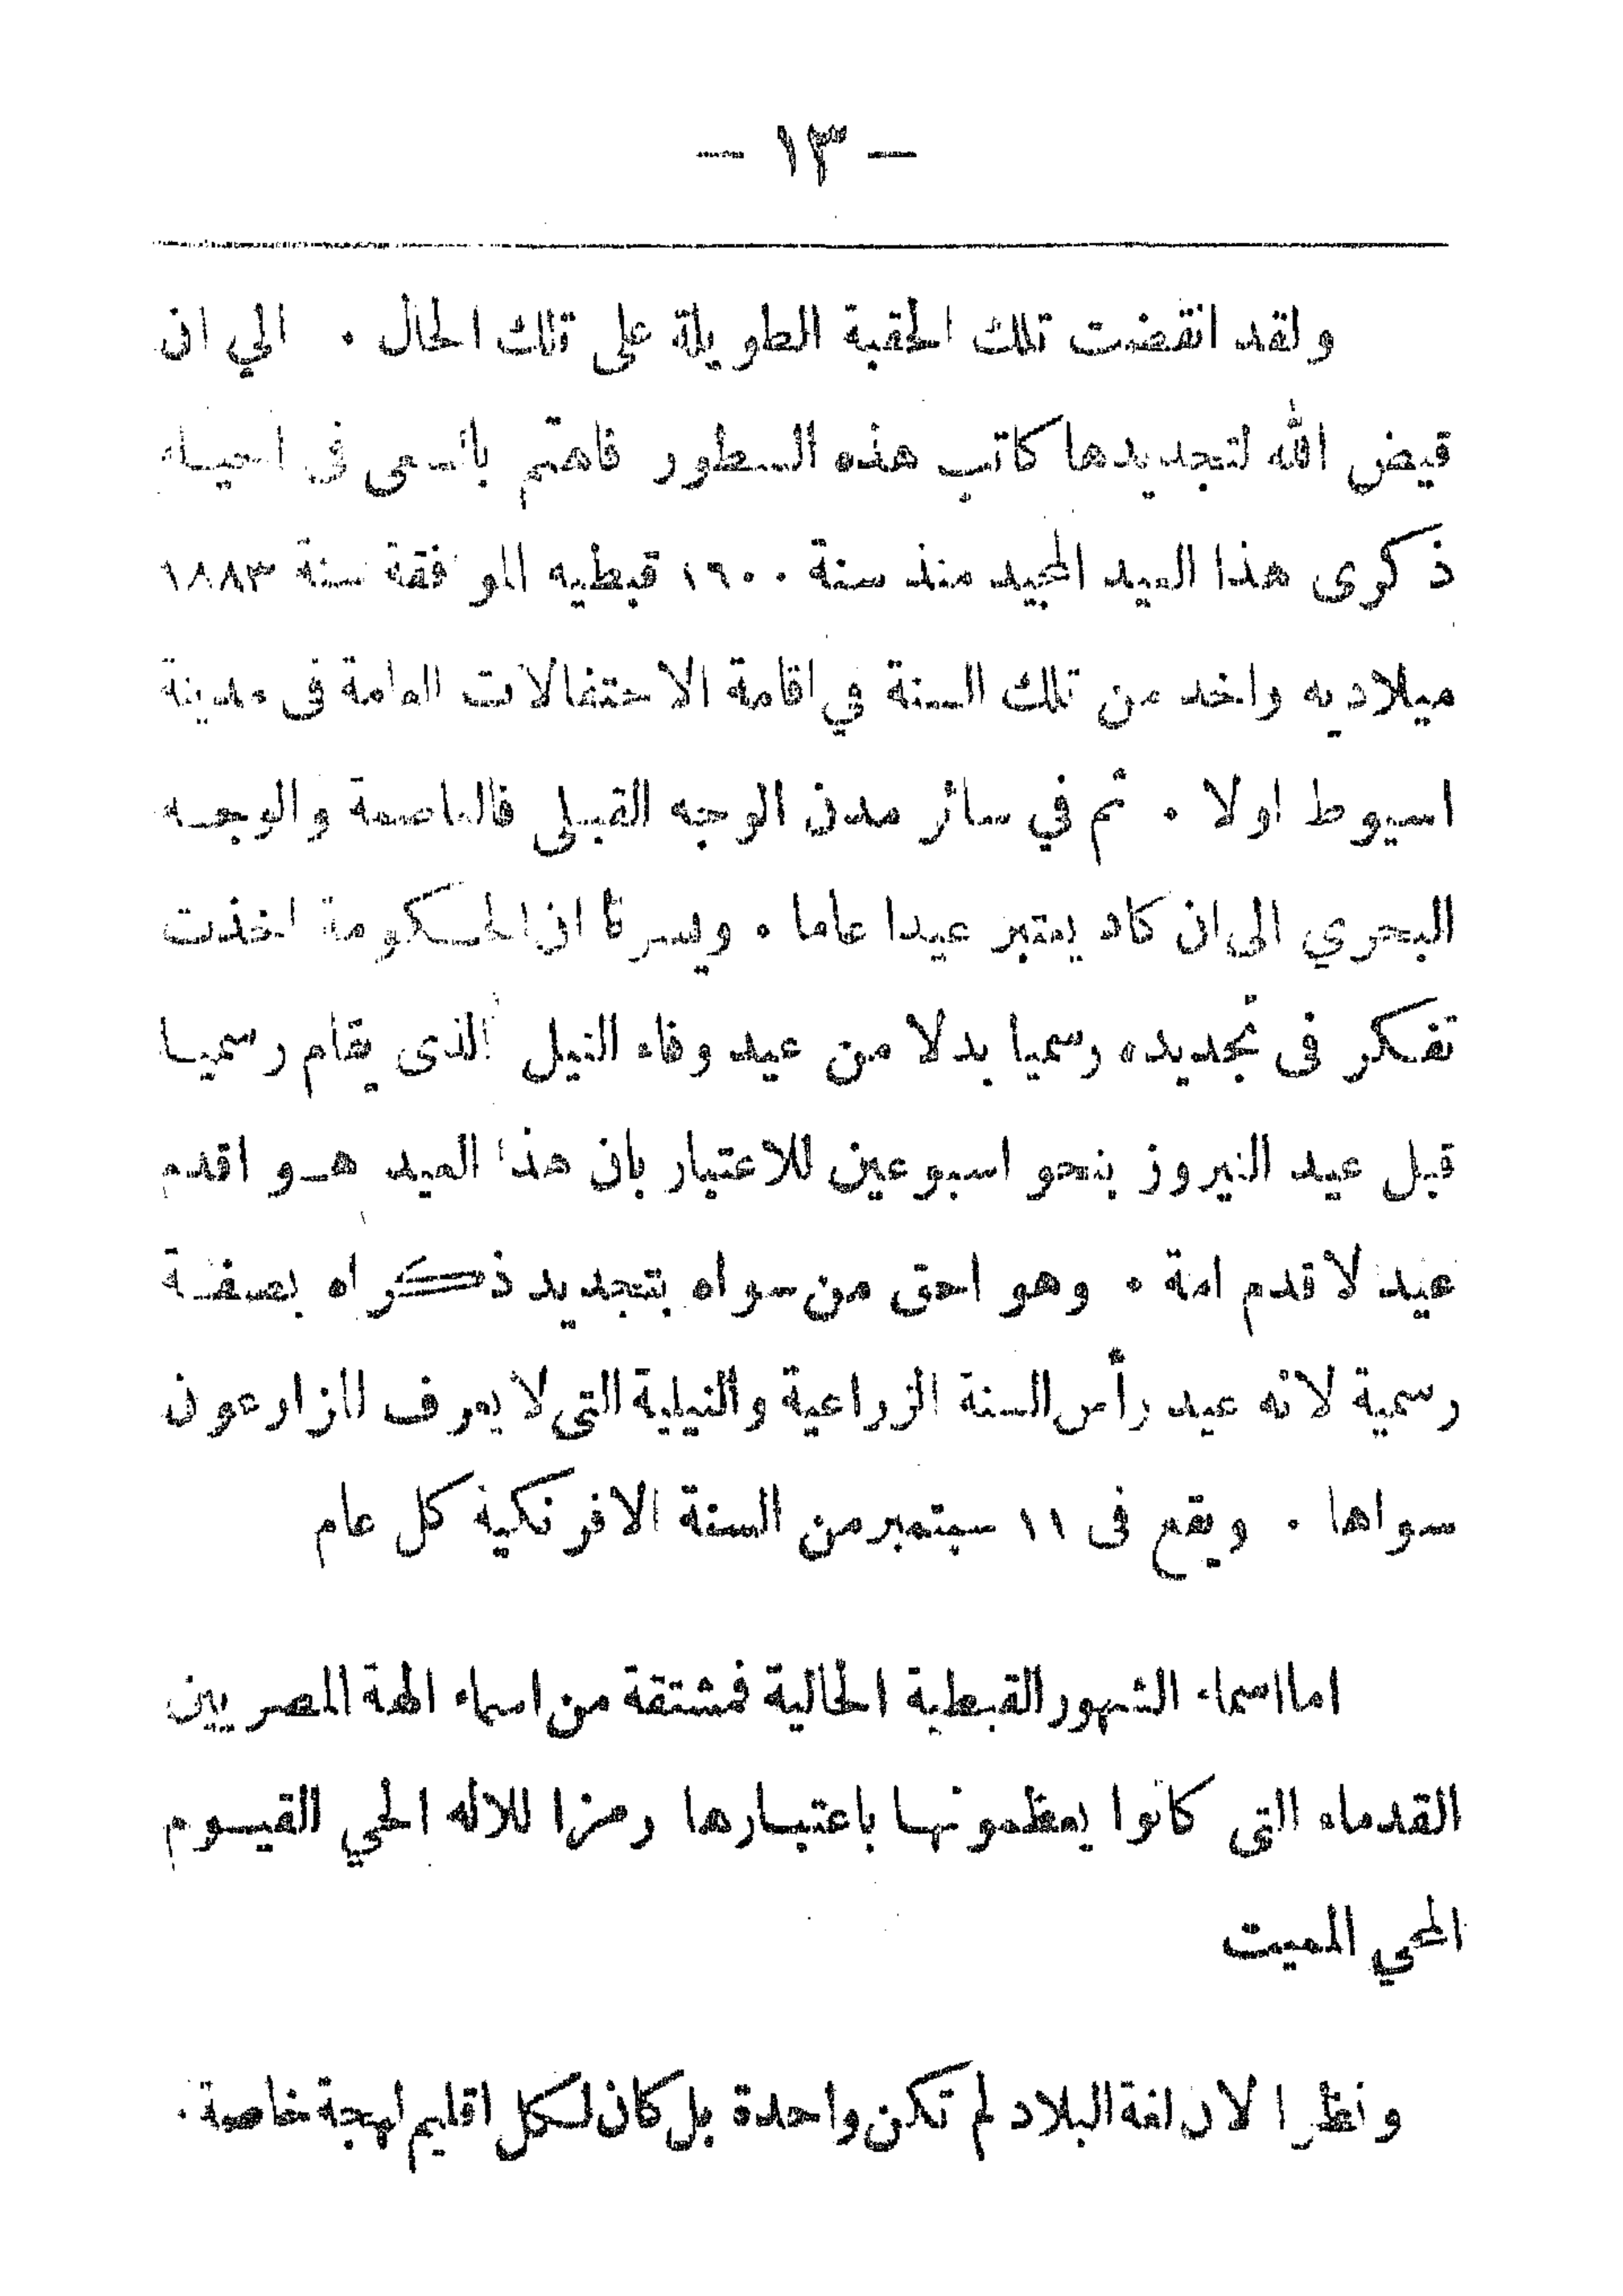 — ١٣ —
ولقد انقضت تلك الحقبة الطويلة على تلك الحال . الي ان
قيض الله لتجديدها كاتب هذه السطور فاهتم بالسعى فى احياء
ذكرى هذا العيد المجيد منذ سنة ١٦٠٠ قبطيه الموافقة سنة ١٨٨٣
ميلاديه واخد من تلك السنة في اقامة الاحتفالات العامة فى مدينة
اسيوط اولا . ثم في سائر مدن الوجه القبلى فالعاصمة والوجه
البحري الى ان كاد يعتبر عيدا عاما . ويسرنا ان الحكومة اخذت
تفكر فى تجديده رسميا بدلا من عيد وفاء النيل الذى يقام رسميا
قبل عيد النيروز بنحو اسبوعين للاعتبار بان هذا العيد هو اقدم
عيد لاقدم امة . وهو احق من سواه بتجديد ذكراه بصفة
رسمية لانه عيد رأس السنة الزراعية والنيلية التى لا يعرف المزارعون
سواها . ويقع فى ١١ سبتمبر من السنة الافرنكية كل عام
اما اسماء الشهور القبطية الحالية فمشتقة من اسماء الهة المصريين
القدماء التى كانوا يعظمونها باعتبارها رمزا للاله الحي القيوم
المحي المميت
ونظرا لان لغة البلاد لم تكن واحدة بل كان لكل اقليم لهجة خاصة .